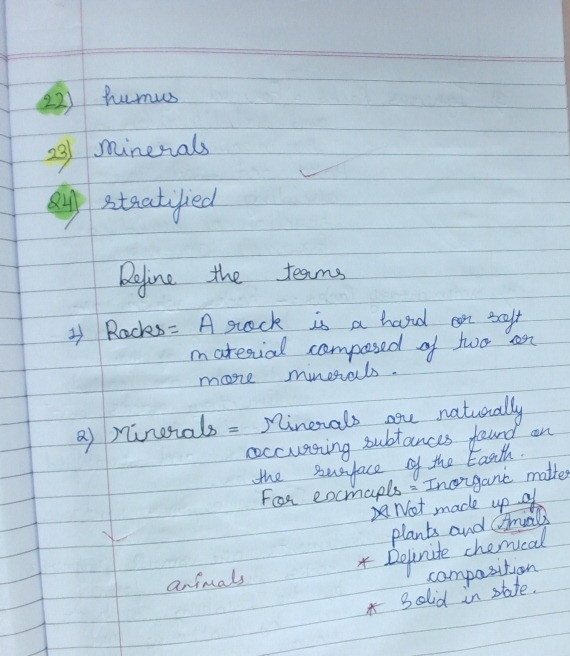 22) humus
23) Minerals
24) stratified
Define the terms
1) Rocks = A rock is a hard or soft
material composed of two or
more minerals.
2) Minerals = Minerals are naturally
occurring subtances found on
the surface of the Earth.
For excmapls = Inorganic matter
* Not made up of
plants and Amials
* Definite chemical
composition
* Solid in state.
animals